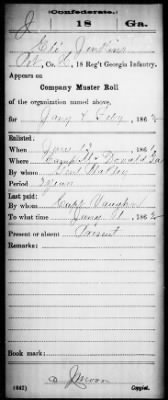 Confederate.
J 18 Ga.
Eli Jenkins
Pvt, Co. H, 18 Reg't Georgia Infantry.
Appears on
Company Muster Roll
of the organization named above,
for Jany & Feby, 186
Enlisted:
When June 13, 186
Where Camp McDonald Ga
By whom
Period 3 years
Last paid:
By whom Capt Vaughn
To what time Jany 1, 186
Present or absent Present
Remarks:
Book mark:
(642) Copyist.